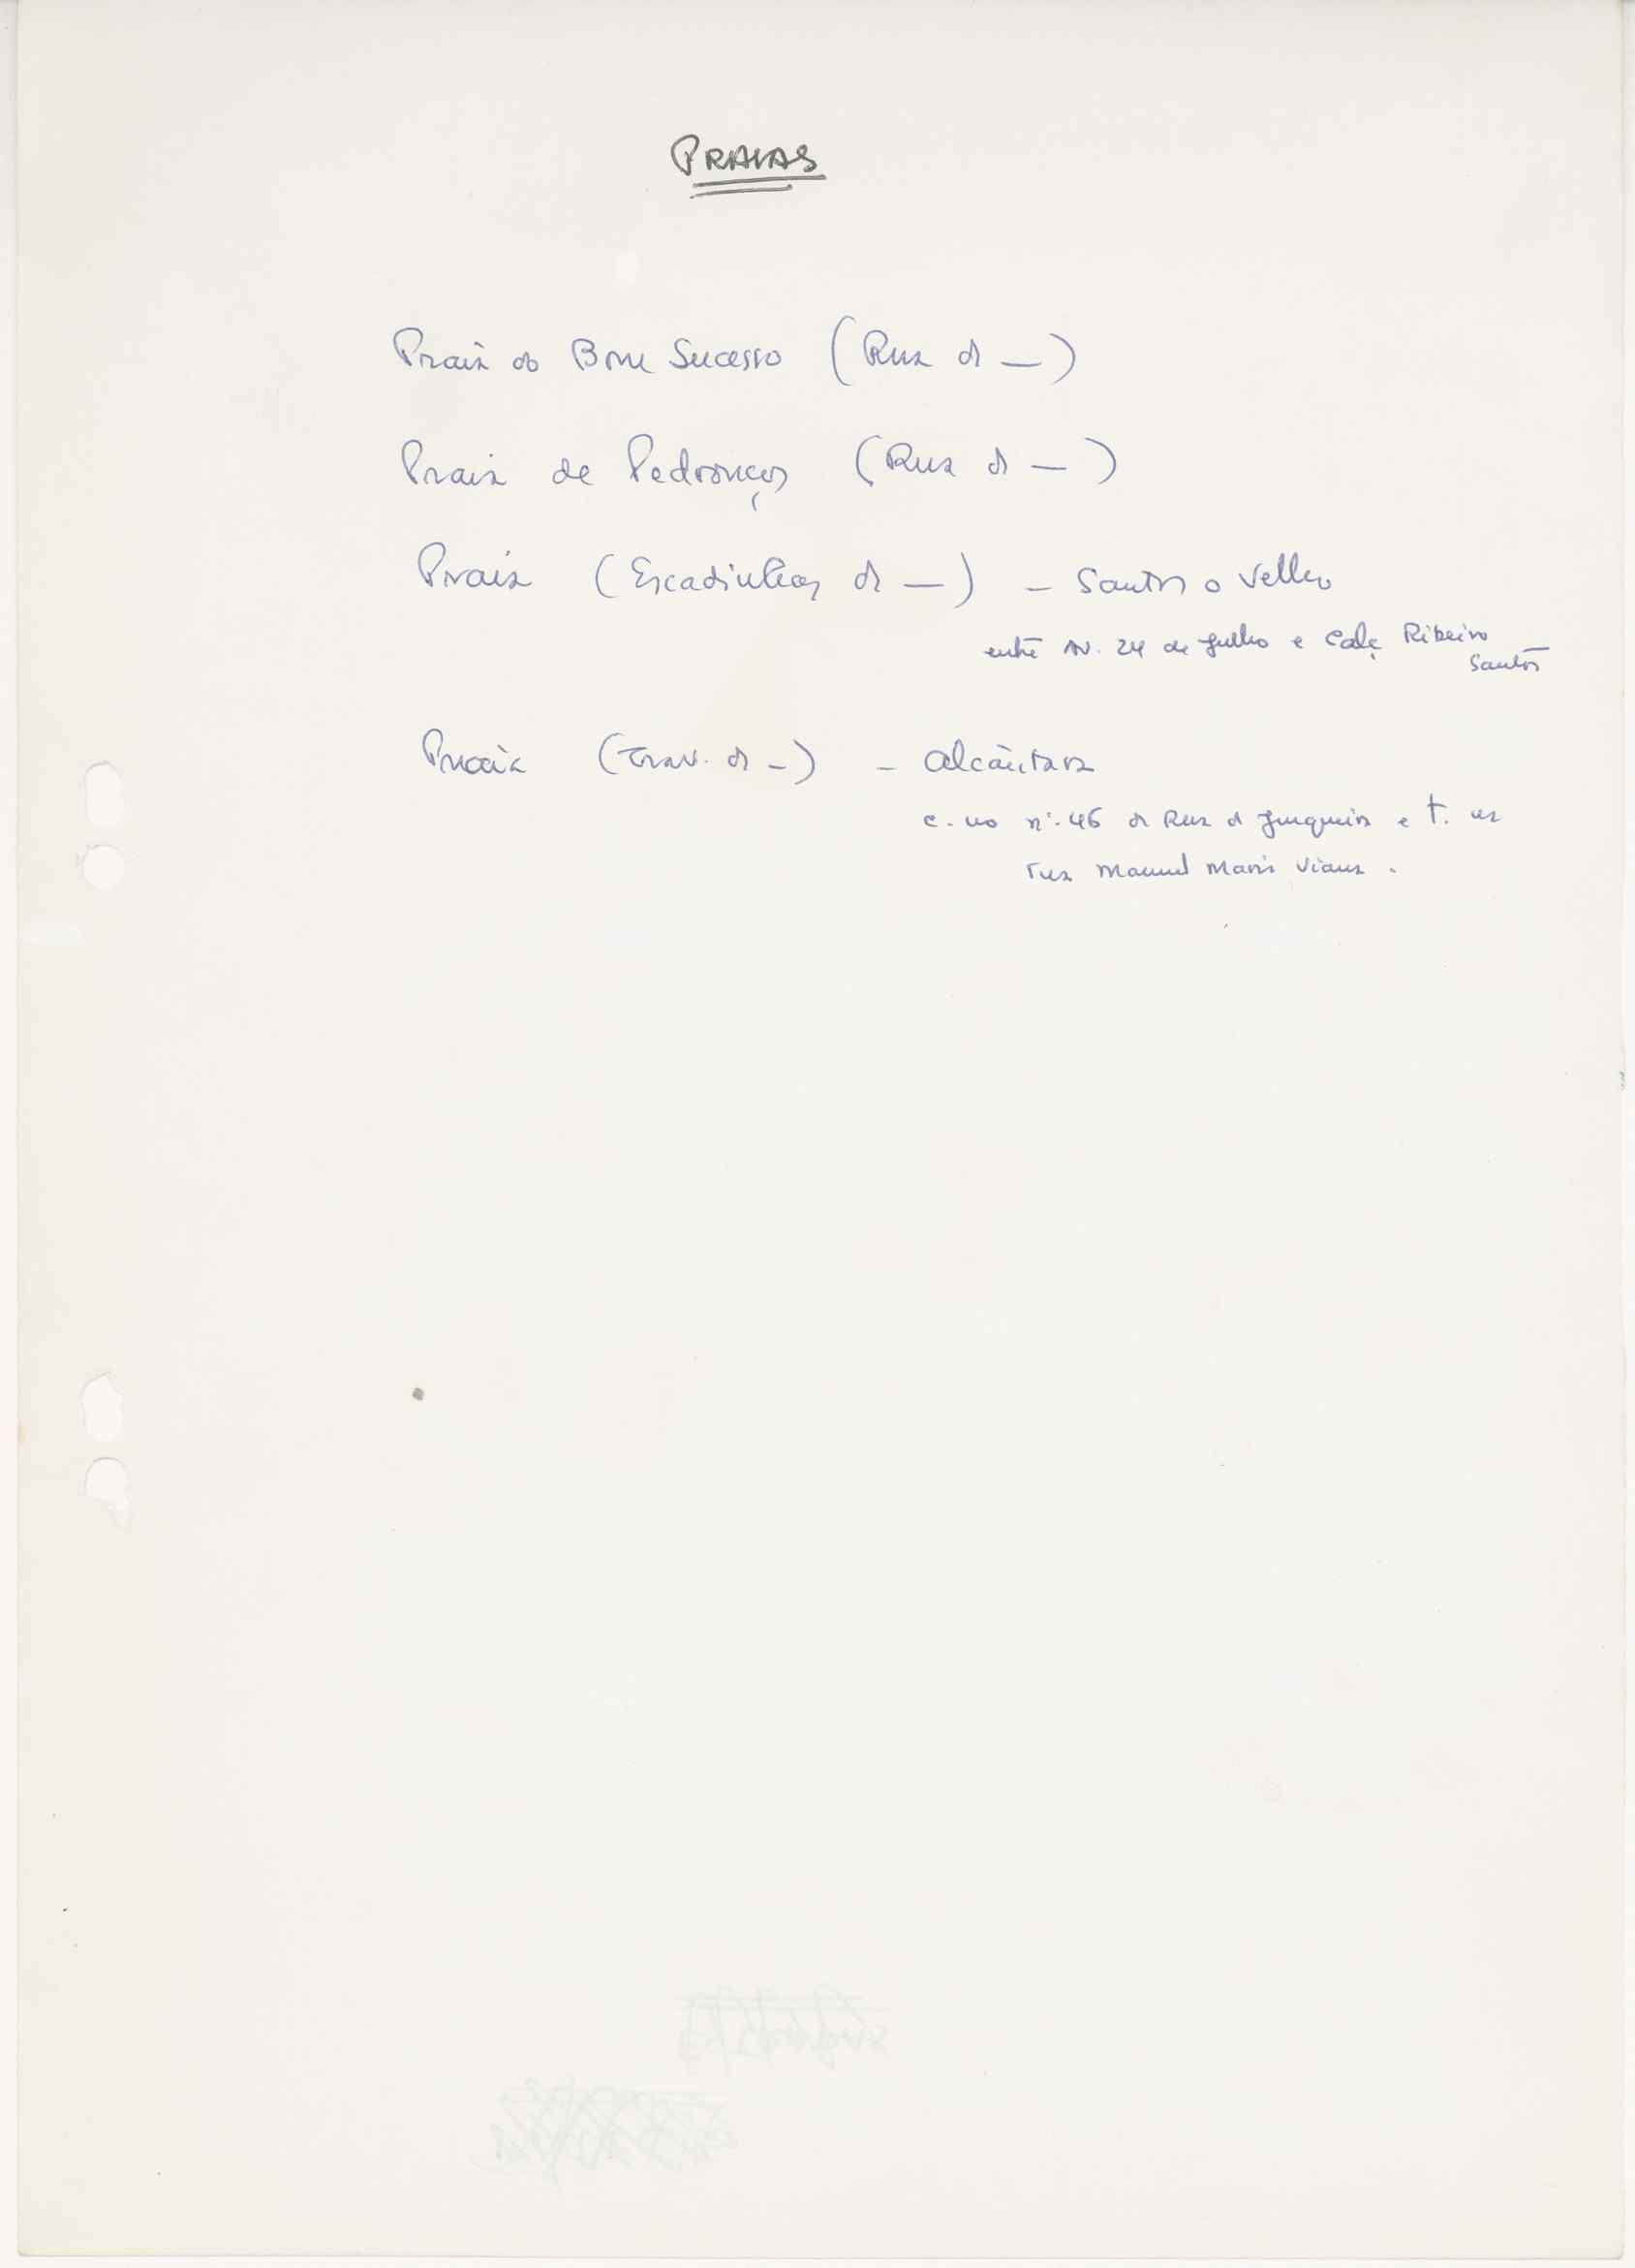 PRAIAS
Praia do Bom Sucesso (Rua da —)
Praia de Pedrouços (Rua da —)
Praia (Escadinhas da —) – Santos o Velho
entre Av. 24 de Julho e Calç Ribeiro
Santos
Praia (Trav. da –) – Alcântara
c. no nº. 46 da Rua da Junqueira e t. na
rua Manuel Maria Viana.